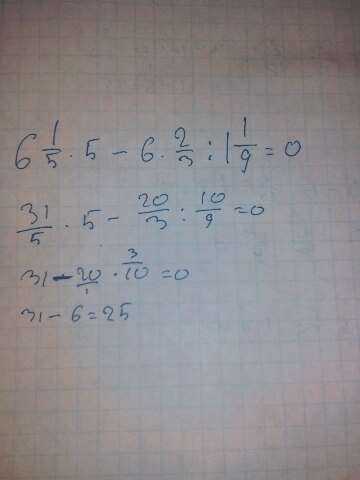 6 1/5 · 5 – 6 · 2/3 : 1 1/9 = 0
31/5 · 5 – 20/3 : 10/9 = 0
31 – 20/1 · 3/10 = 0
31 – 6 = 25